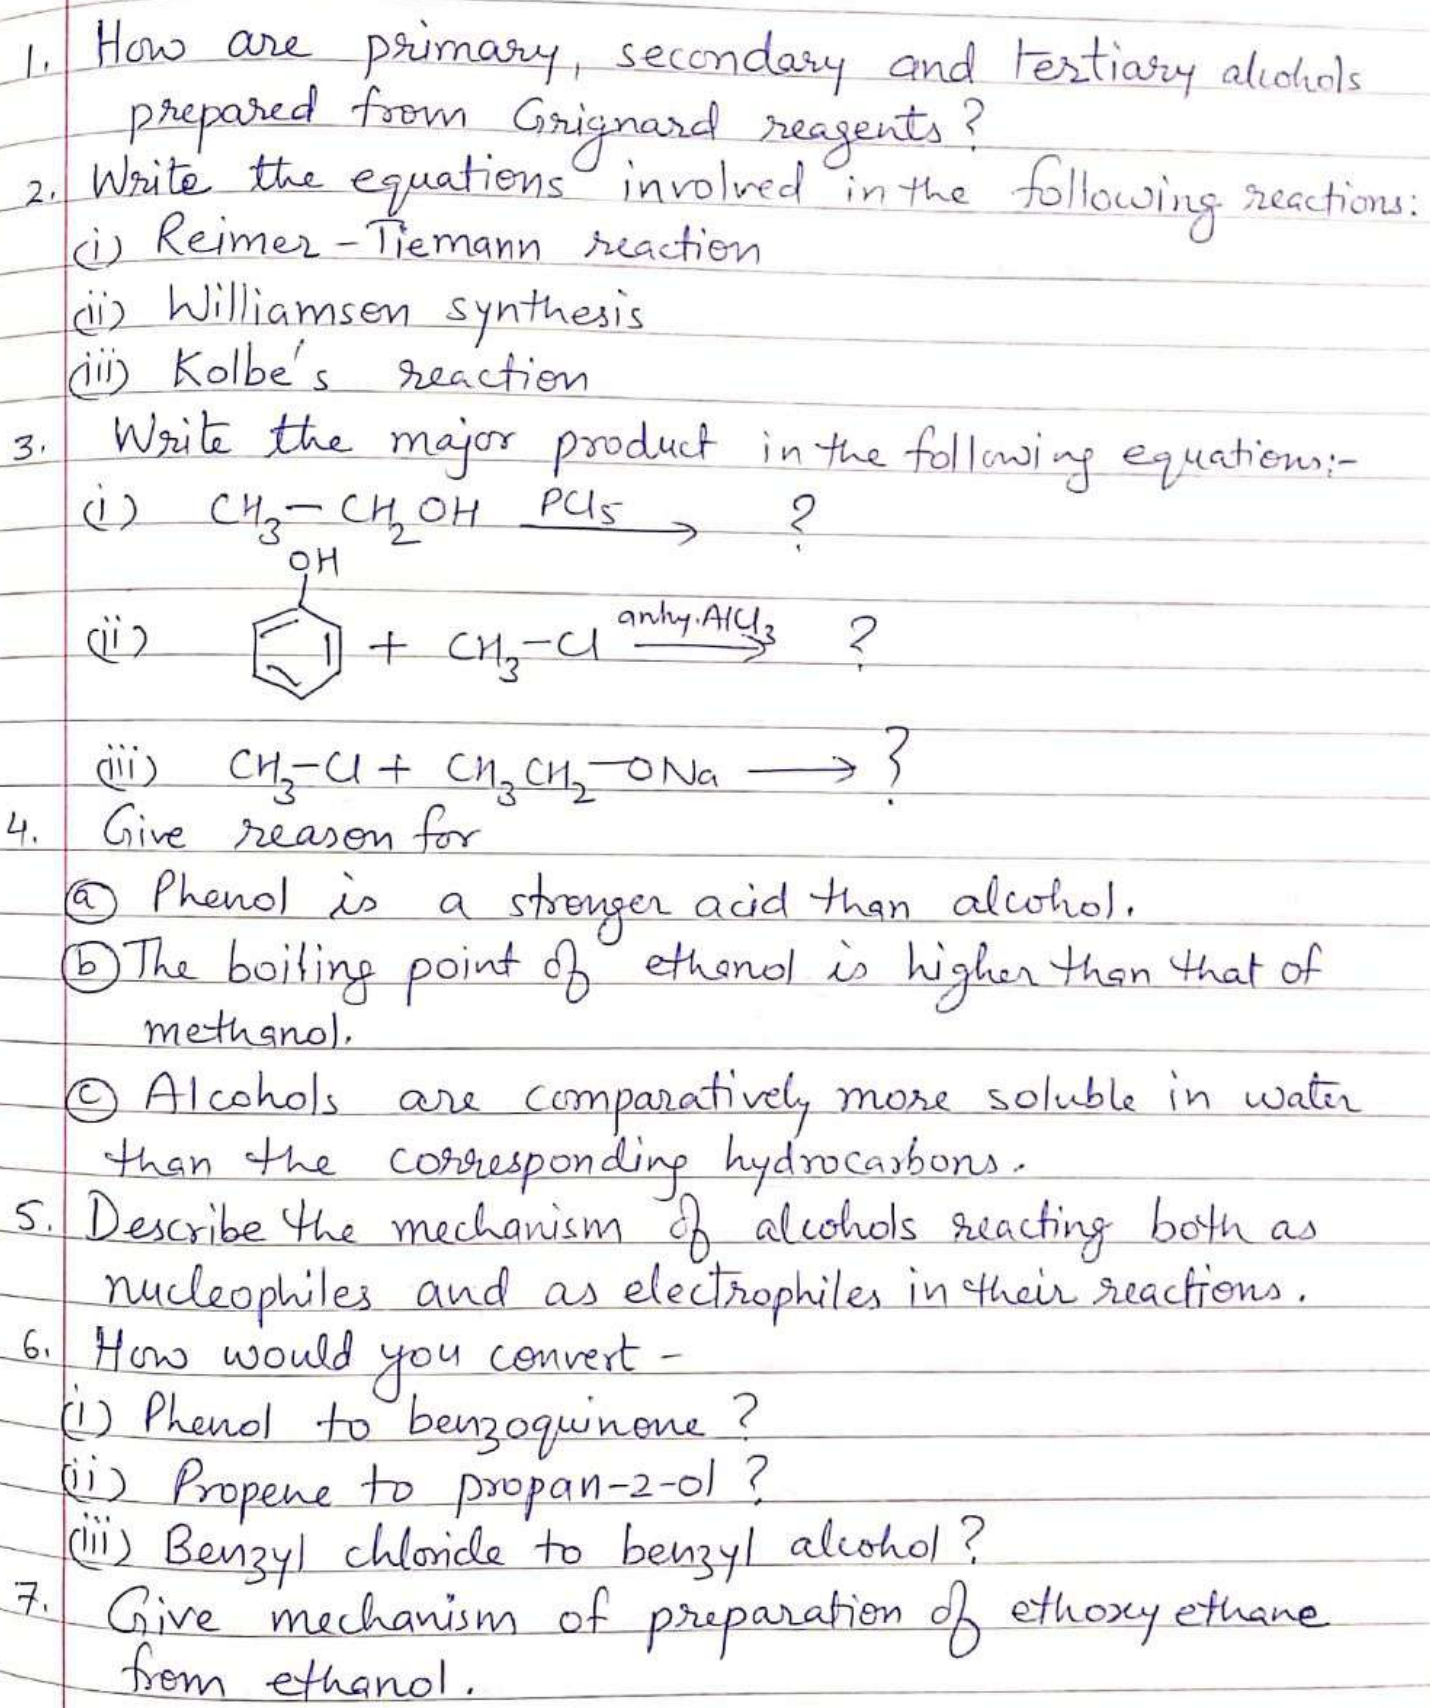 1. How are primary, secondary and tertiary alcohols
prepared from Grignard reagents?
2. Write the equations involved in the following reactions:
(i) Reimer-Tiemann reaction
(ii) Williamson synthesis
(iii) Kolbe's reaction
3. Write the major product in the following equations:-
(i) CH3-CH2OH PCl5 → ?
OH
(ii) + CH3-Cl anhy.AlCl3 → ?
(iii) CH3-Cl + CH3CH2-ONa → ?
4. Give reason for
(a) Phenol is a stronger acid than alcohol.
(b) The boiling point of ethanol is higher than that of
methanol.
(c) Alcohols are comparatively more soluble in water
than the corresponding hydrocarbons.
5. Describe the mechanism of alcohols reacting both as
nucleophiles and as electrophiles in their reactions.
6. How would you convert -
(i) Phenol to benzoquinone?
(ii) Propene to propan-2-ol?
(iii) Benzyl chloride to benzyl alcohol?
7. Give mechanism of preparation of ethoxy ethane
from ethanol.